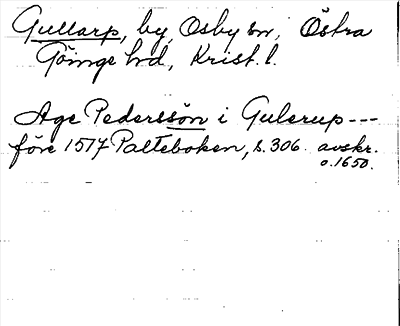 Gullarp, by, Osby sn, Östra
Göinge hd, Krist. l.
Age Pederssön i Gulerup---
före 1517 Palteboken, s. 306. avskr.
o. 1650.